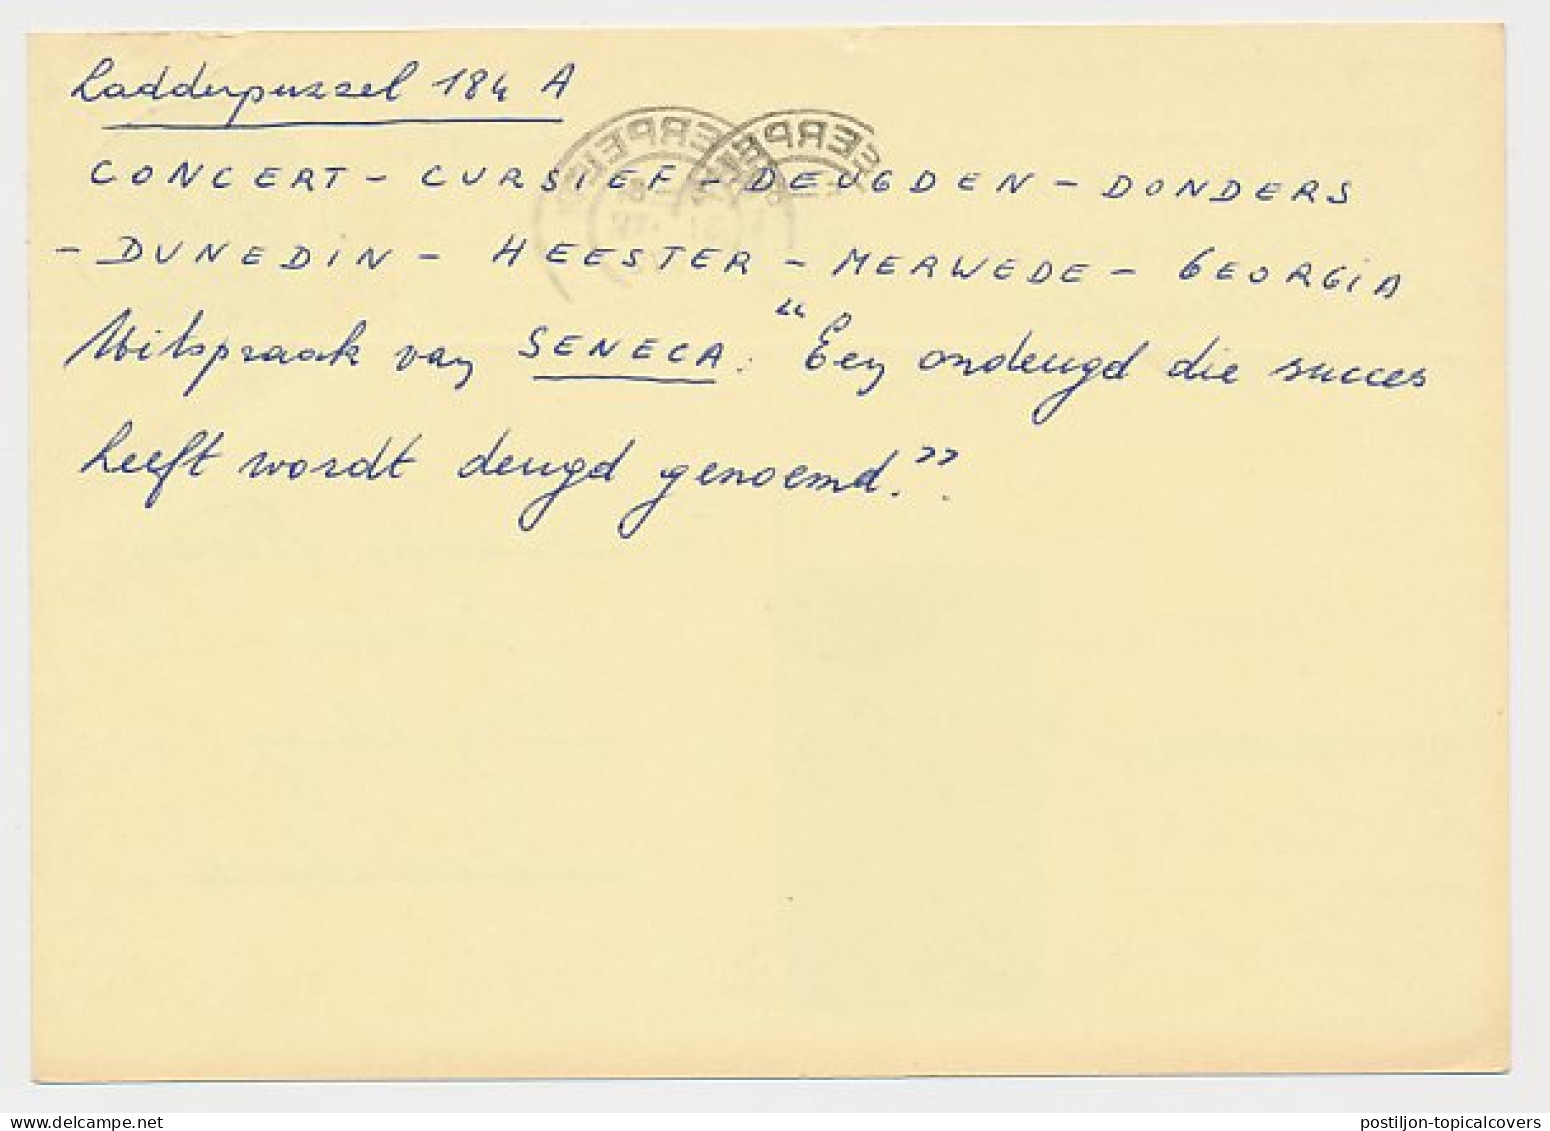 Ladderpuzzel 184 A
CONCERT - CURSIEF - DEUGDEN - DONDERS
- DUNEDIN - HEESTER - MERWEDE - GEORGIA
Uitspraak van SENECA: "Een ondeugd die succes
heeft wordt deugd genoemd."
postiljon-topicalcovers